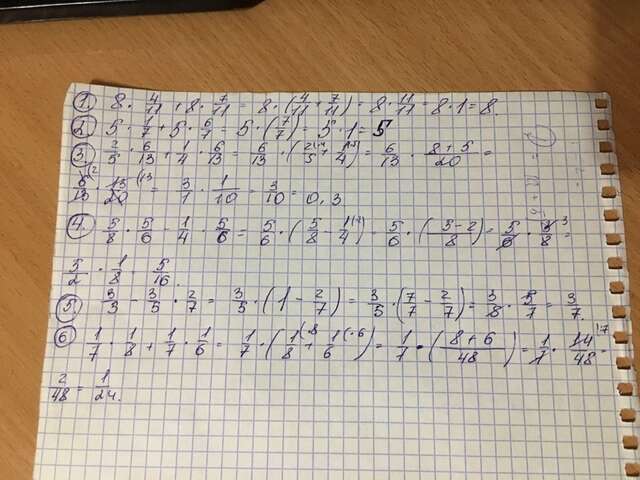 1. 8 · 4/11 + 8 · 7/11 = 8 · (4/11 + 7/11) = 8 · 11/11 = 8 · 1 = 8.
2. 5 · 1/7 + 5 · 6/7 = 5 · (7/7) = 5 · 1 = 5
3. 2/5 · 6/13 + 1/4 · 6/13 = 6/13 · (2/5 + 1/4) = 6/13 · 8+5/20 =
6/13 · 13/20 = 3/1 · 1/10 = 3/10 = 0,3
4. 5/8 · 5/6 - 1/4 · 5/6 = 5/6 · (5/8 - 1/4) = 5/6 · (5-2/8) = 5/6 · 3/8 =
5/2 · 1/8 = 5/16.
5. 3/5 - 3/5 · 2/7 = 3/5 · (1 - 2/7) = 3/5 · (7/7 - 2/7) = 3/5 · 5/7 = 3/7.
6 1/7 · 1/8 + 1/7 · 1/6 = 1/7 · (1/8 + 1/6) = 1/7 · (8+6/48) = 1/7 · 14/48 =
2/48 = 1/24.